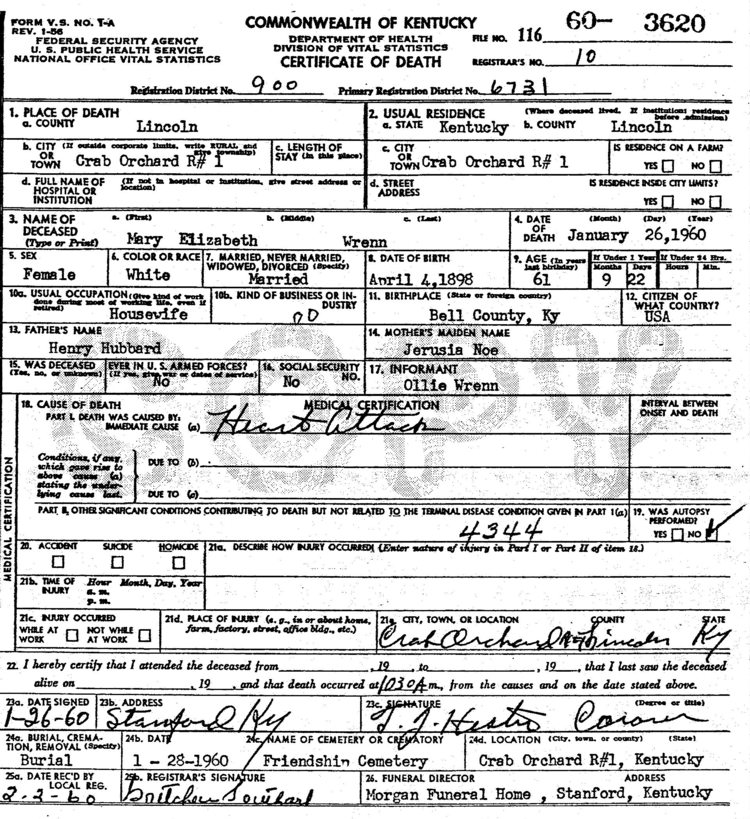 FORM V.S. NO. T-A
REV. 1-56
FEDERAL SECURITY AGENCY
U. S. PUBLIC HEALTH SERVICE
NATIONAL OFFICE VITAL STATISTICS
COMMONWEALTH OF KENTUCKY
DEPARTMENT OF HEALTH
DIVISION OF VITAL STATISTICS
CERTIFICATE OF DEATH
FILE NO. 116 60- 3620
REGISTRAR'S NO. 10
Registration District No. 900 Primary Registration District No. 6731
1. PLACE OF DEATH
a. COUNTY Lincoln
2. USUAL RESIDENCE (Where deceased lived. If institution: residence before admission)
a. STATE Kentucky b. COUNTY Lincoln
b. CITY (If outside corporate limits, write RURAL and give township)
OR TOWN Crab Orchard R# 1
c. LENGTH OF STAY (in this place)
c. CITY OR TOWN Crab Orchard R# 1
IS RESIDENCE ON A FARM?
YES NO
d. FULL NAME OF HOSPITAL OR INSTITUTION (If not in hospital or institution, give street address or location)
d. STREET ADDRESS
IS RESIDENCE INSIDE CITY LIMITS?
YES NO
3. NAME OF DECEASED (Type or Print)
a. (First) b. (Middle) c. (Last)
Mary Elizabeth Wrenn
4. DATE OF DEATH (Month) (Day) (Year)
January 26,1960
5. SEX
Female
6. COLOR OR RACE
White
7. MARRIED, NEVER MARRIED, WIDOWED, DIVORCED (Specify)
Married
8. DATE OF BIRTH
April 4,1898
9. AGE (In years last birthday)
61
If Under 1 Year Months Days
9 22
If Under 24 Hrs. Hours Min.
10a. USUAL OCCUPATION (Give kind of work done during most of working life, even if retired)
Housewife
10b. KIND OF BUSINESS OR INDUSTRY
11. BIRTHPLACE (State or foreign country)
Bell County, Ky
12. CITIZEN OF WHAT COUNTRY?
USA
13. FATHER'S NAME
Henry Hubbard
14. MOTHER'S MAIDEN NAME
Jerusia Noe
15. WAS DECEASED EVER IN U. S. ARMED FORCES?
(Yes, no, or unknown) (If yes, give war or dates of service)
No
16. SOCIAL SECURITY NO.
No
17. INFORMANT
Ollie Wrenn
COPY
MEDICAL CERTIFICATION
18. CAUSE OF DEATH MEDICAL CERTIFICATION
PART I. DEATH WAS CAUSED BY:
IMMEDIATE CAUSE (a) Heart Attack
INTERVAL BETWEEN ONSET AND DEATH
Conditions, if any, which gave rise to above cause (a) stating the underlying cause last.
DUE TO (b)
DUE TO (c)
PART II. OTHER SIGNIFICANT CONDITIONS CONTRIBUTING TO DEATH BUT NOT RELATED TO THE TERMINAL DISEASE CONDITION GIVEN IN PART 1(a)
4344
19. WAS AUTOPSY PERFORMED?
YES NO
20. ACCIDENT SUICIDE HOMICIDE
21a. DESCRIBE HOW INJURY OCCURRED (Enter nature of injury in Part I or Part II of item 18.)
21b. TIME OF INJURY Hour Month, Day, Year
a. m.
p. m.
21c. INJURY OCCURRED
WHILE AT WORK NOT WHILE AT WORK
21d. PLACE OF INJURY (e. g., in or about home, farm, factory, street, office bldg., etc.)
21e. CITY, TOWN, OR LOCATION COUNTY STATE
Crab Orchard Lincoln Ky
22. I hereby certify that I attended the deceased from , 19 to , 19 , that I last saw the deceased
alive on , 19 , and that death occurred at 1030A m., from the causes and on the date stated above.
23a. DATE SIGNED
1-26-60
23b. ADDRESS
Stanford Ky
23c. SIGNATURE (Degree or title)
Coroner
24a. BURIAL, CREMATION, REMOVAL (Specify)
Burial
24b. DATE
1 -28-1960
24c. NAME OF CEMETERY OR CREMATORY
Friendship Cemetery
24d. LOCATION (City, town, or county) (State)
Crab Orchard R#1, Kentucky
25a. DATE REC'D BY LOCAL REG.
2-2-60
25b. REGISTRAR'S SIGNATURE
26. FUNERAL DIRECTOR ADDRESS
Morgan Funeral Home , Stanford, Kentucky